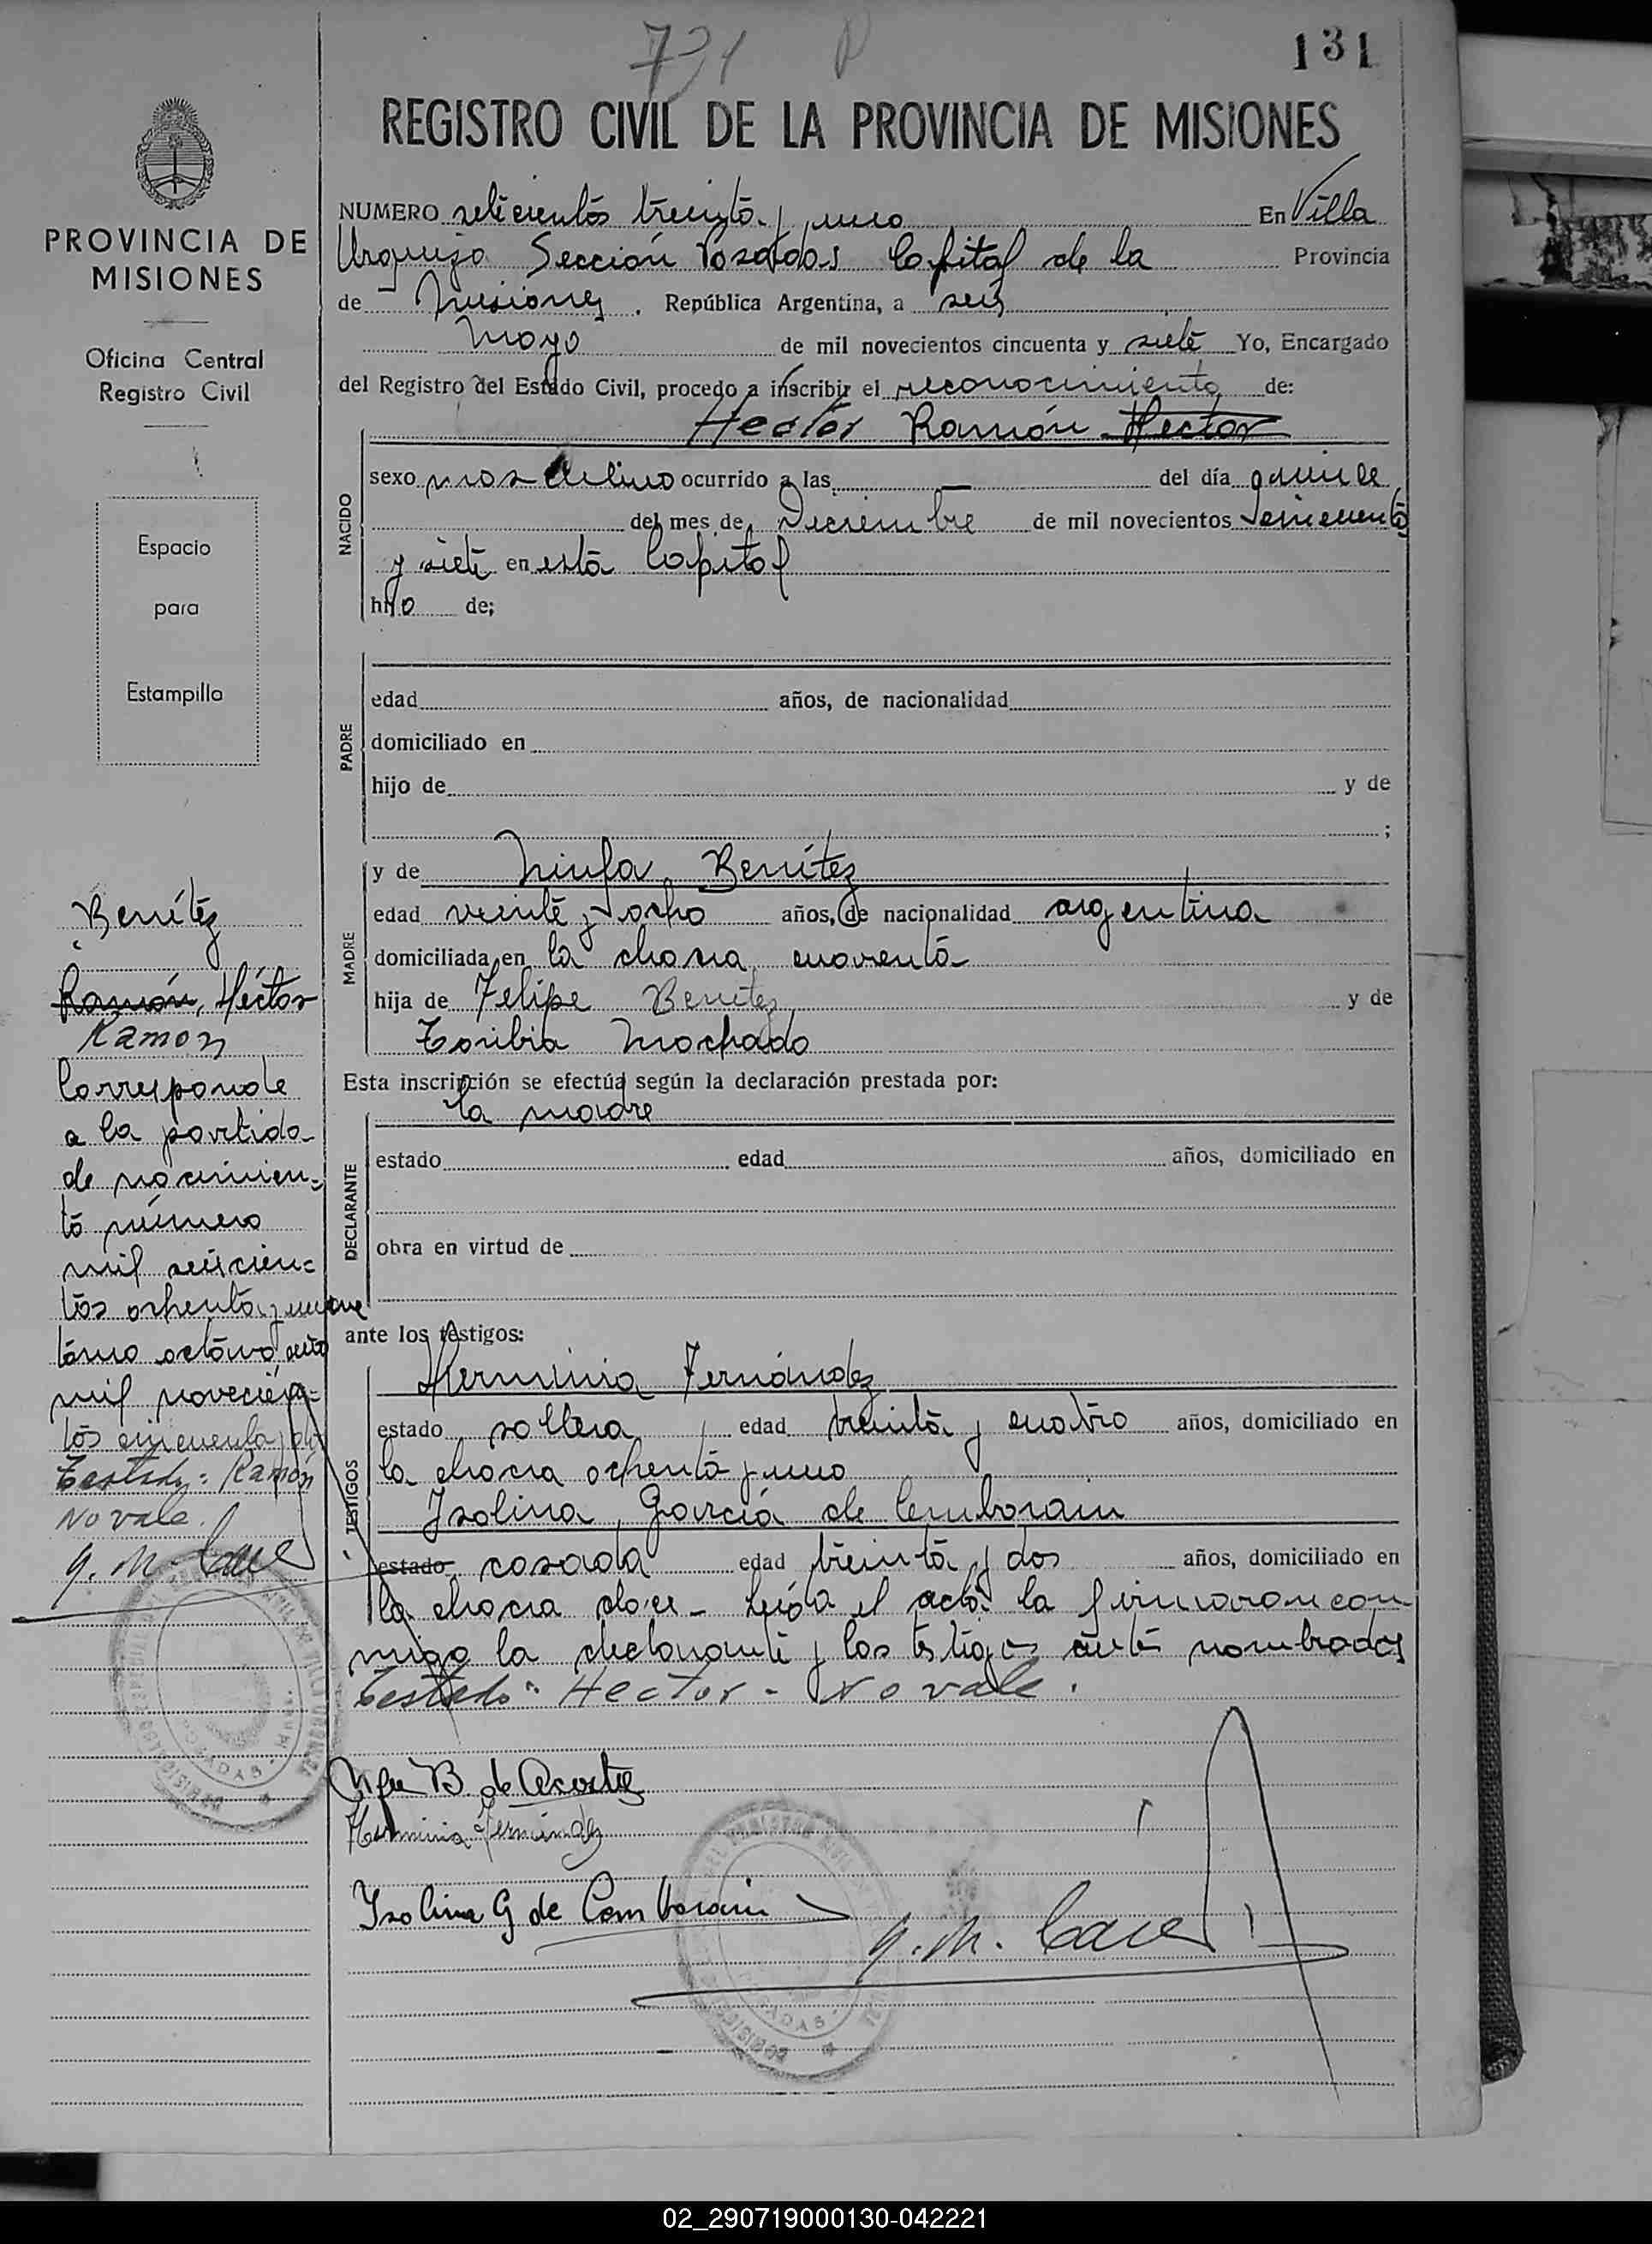 731
131
REGISTRO CIVIL DE LA PROVINCIA DE MISIONES
PROVINCIA DE
MISIONES
Oficina Central
Registro Civil
Espacio
para
Estampilla
NUMERO setecientos treinta y uno En Villa
Urquiza Sección Posadas Capital de la Provincia
de Misiones. República Argentina, a seis
Mayo de mil novecientos cincuenta y siete Yo, Encargado
del Registro del Estado Civil, procedo a inscribir el reconocimiento de:
Hector Ramón Hector
NACIDO
sexo masculino ocurrido a las — del día quince
del mes de Diciembre de mil novecientos
y siete en esta Capital
hijo de;
PADRE
edad años, de nacionalidad
domiciliado en
hijo de y de
;
MADRE
y de Ninfa Benítez
edad veinte y ocho años, de nacionalidad argentina
domiciliada en la chacra cuarenta
hija de Felipe Benitez y de
Toribia Machado
Esta inscripción se efectúa según la declaración prestada por:
la madre
DECLARANTE
estado edad años, domiciliado en
obra en virtud de
ante los testigos:
TESTIGOS
Herminia Fernández
estado soltera edad treinta y cuatro años, domiciliado en
la chacra ochenta y uno
Isolina García de Cemborain
estado casada edad treinta y dos años, domiciliado en
la chacra doce - leída el acta la firmaron con
migo la declarante y los testigos antes nombrados
Testado: Hector - No vale.
B. de Acosta
Herminia Fernández
Isolina G de Cemborain
G. M.
Benítez
Ramón, Héctor
Ramon
Corresponde
a la partida
de nacimien-
to número
mil seiscien-
tos ochenta y nueve
tomo octavo año
mil novecien-
tos cincuenta
Testado: Ramón
No vale.
G. M.
POSADAS
MISIONES
02_290719000130-042221